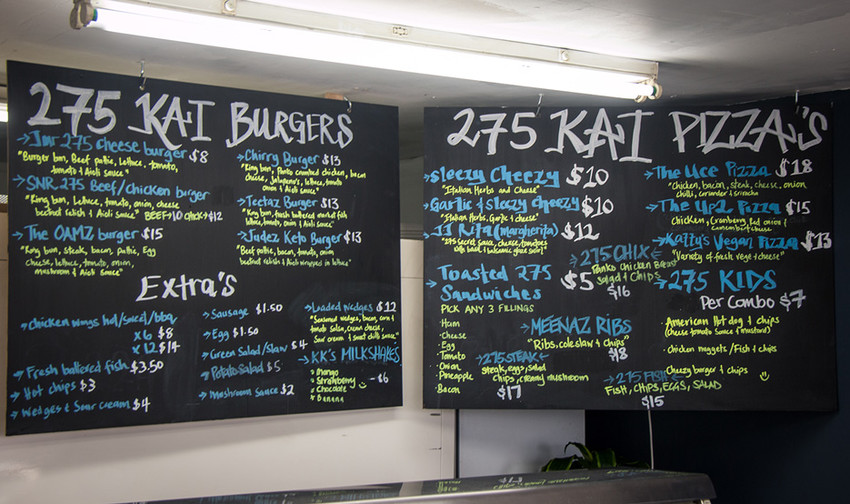 275 KAI BURGERS
→Jnr 275 cheese burger $8
"Burger bun, Beef pattie, lettuce, tomato,
tomato & Aioli sauce"
→SNR 275 Beef/chicken burger
"King bun, Lettuce, tomato, onion, cheese
beetroot relish & Aioli Sauce" BEEF $10 CHICK $12
→The OAMZ burger $15
"King bun, steak, bacon, pattie, Egg
cheese, lettuce, tomato, onion,
mushroom & Aioli Sauce"
→Chirry Burger $13
"King bun, Panko crumbed chicken, bacon
cheese, Jalapeno's, lettuce, tomato
onion & Aioli sauce"
→Teetaz Burger $13
"King bun, fresh battered market fish
lettuce, tomato, onion & Aioli Sauce"
→Judez Keto Burger $13
"Beef pattie, bacon, tomato, onion
beetroot relish & Aioli wrapped in lettuce"
Extra's
→Chicken wings hot/sweet/bbq
x6 $8
x12 $14
→Fresh battered fish $3.50
→Hot chips $3
→Wedges & Sour cream $4
→Sausage $1.50
→Egg $1.50
→Green Salad/Slaw $4
→Potato Salad $5
→Mushroom Sauce $2
→Loaded Wedges $12
"Seasoned wedges, bacon, corn &
tomato salsa, cream cheese,
sour cream & sweet chilli sauce"
→KK's MILKSHAKES
Mango
Strawberry
Chocolate
Banana
- $6
275 KAI PIZZA'S
→Sleazy Cheezy $10
"Italian Herbs and Cheese"
→Garlic & sleazy cheezy $10
"Italian Herbs, Garlic & cheese"
→JJ Rita (margherita) $12
"275 Secret sauce, cheese, tomatoes
with basil & balsamic glaze swirl"
→Toasted 275
Sandwiches $5
PICK ANY 3 FILLINGS
Ham
Cheese
Egg
Tomato
Onion
Pineapple
Bacon
→275 CHIX
Panko Chicken Breast
Salad & Chips
$16
→MEENAZ RIBS
"Ribs, coleslaw & chips"
$18
→275 STEAK←
steak, eggs, salad
chips, creamy mushroom
$17
→The Uce Pizza $18
"Chicken, bacon, steak, cheese, onion
chilli, coriander & sriracha
→The Up2 Pizza $15
Chicken, Cranberry, Red onion &
Camembert cheese
→Katty's Vegan Pizza $13
"Variety of fresh vege & cheese"
→275 KIDS
Per Combo $7
American Hot dog & chips
(cheese tomato sauce & mustard)
chicken nuggets/Fish & chips
Cheezy burger & chips
→275 FISH←
FISH, CHIPS, EGGS, SALAD
$15